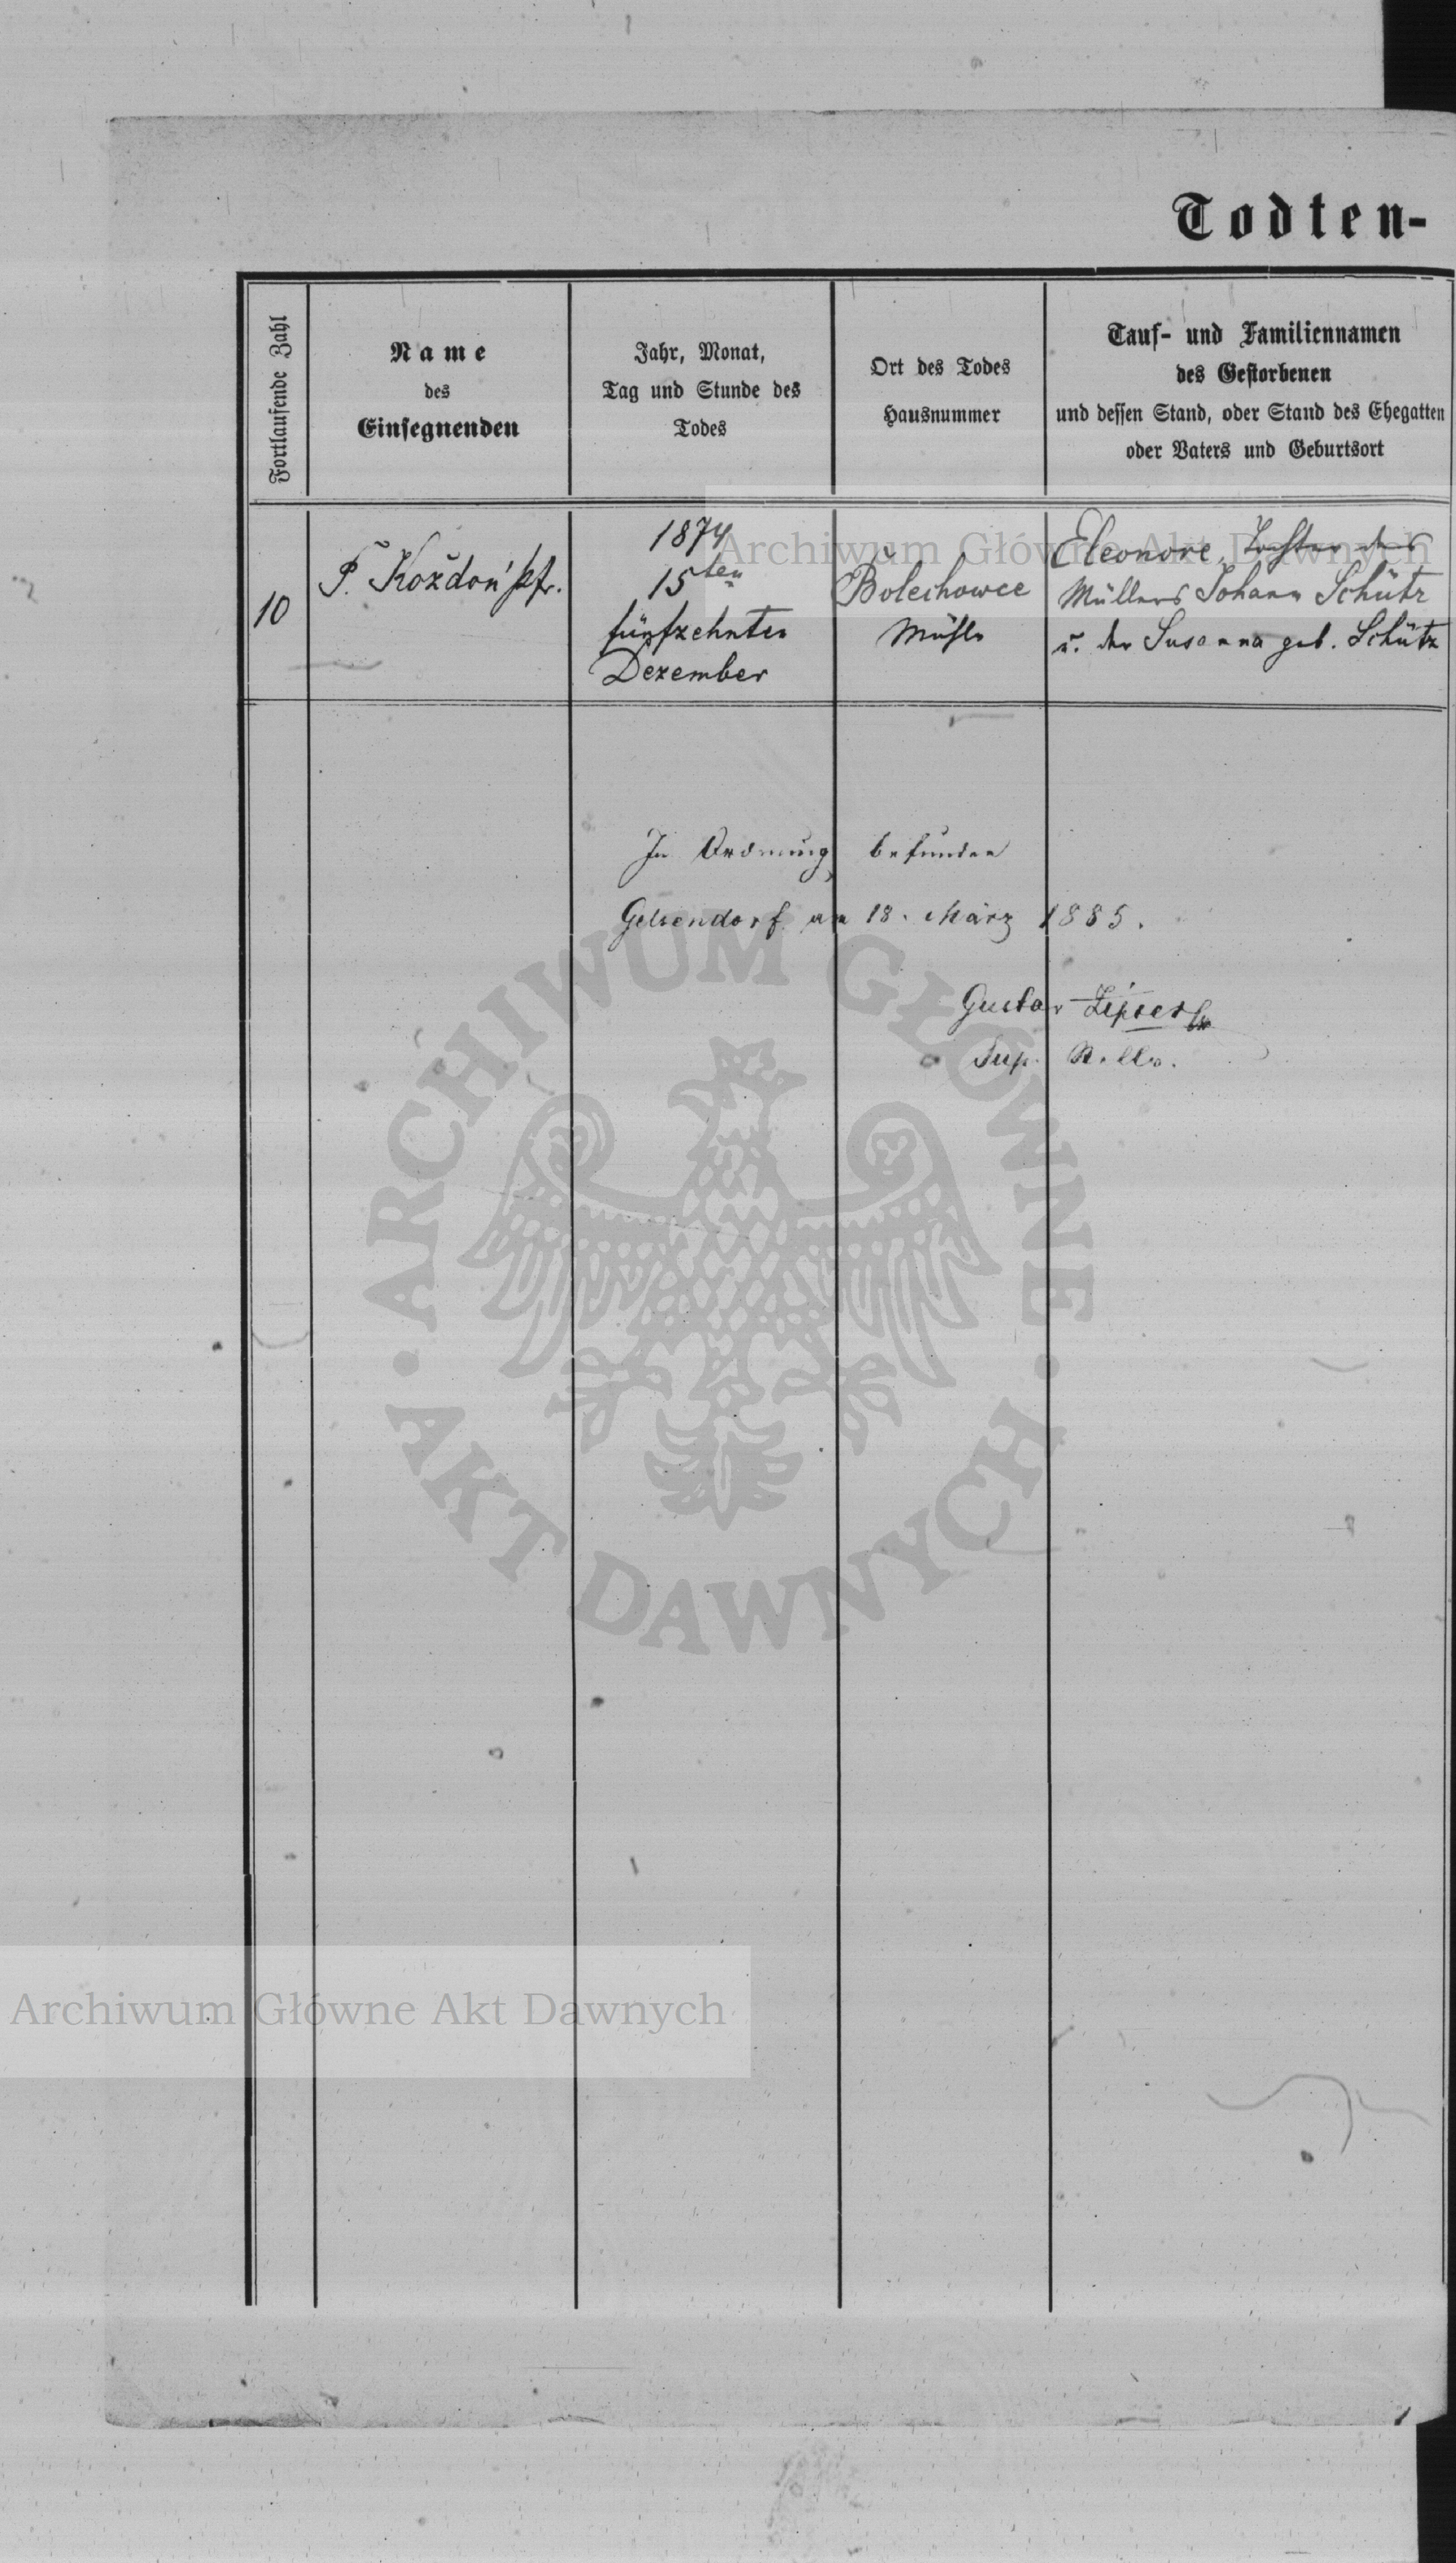 Todten-
Fortlaufende Zahl
Name
des
Einsegnenden
Jahr, Monat,
Tag und Stunde des
Todes
Ort des Todes
Hausnummer
Tauf- und Familiennamen
des Gestorbenen
und dessen Stand, oder Stand des Ehegatten
oder Vaters und Geburtsort
10
P. Koždoń Pfr.
1874
15ten
fünfzehnten
Dezember
Bolechowce
Mühle
Eleonore, Tochter des
Müllers Johann Schütz
u. der Susanna geb. Schütz
In Ordnung befunden
Gelsendorf am 18. März 1885.
Gustav Zipser
Sup.
Archiwum Główne Akt Dawnych
ARCHIWUM GŁÓWNE
AKT DAWNYCH
Archiwum Główne Akt Dawnych